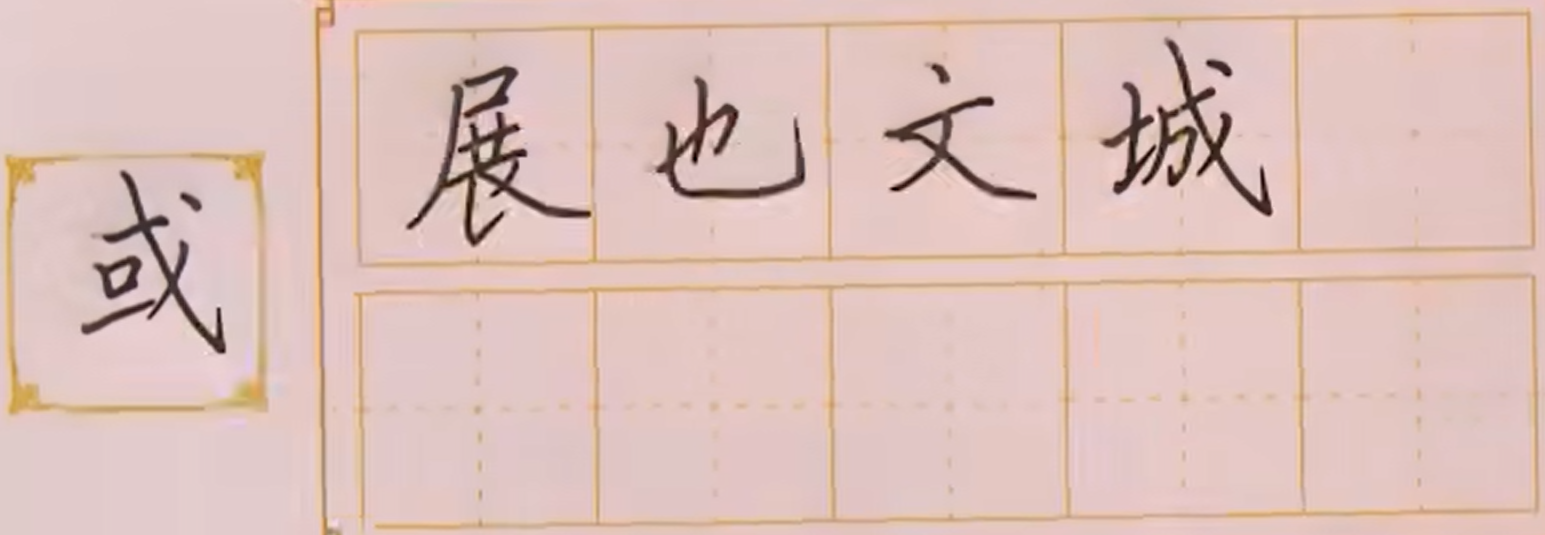 或
展也文城